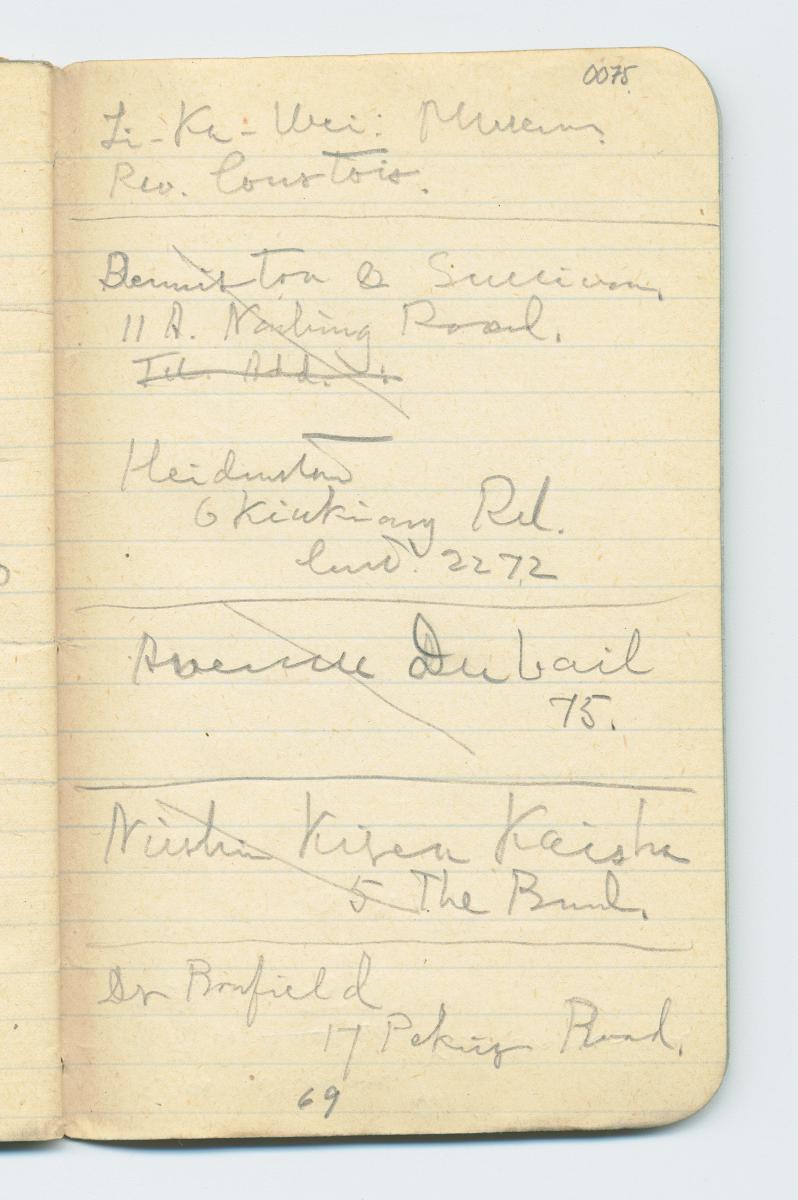 0075
Zi-Ka-Wei: Museum.
Rev. Courtois.
Denniston & Sullivan,
11 A. Nanking Road.
Tel. Add.
6 Kiukiang Rd.
Cent. 2272
Avenue Dubail
75.
Nisshin Kisen Kaisha
5 The Bund.
Dr Bonfield
17 Peking Road.
69